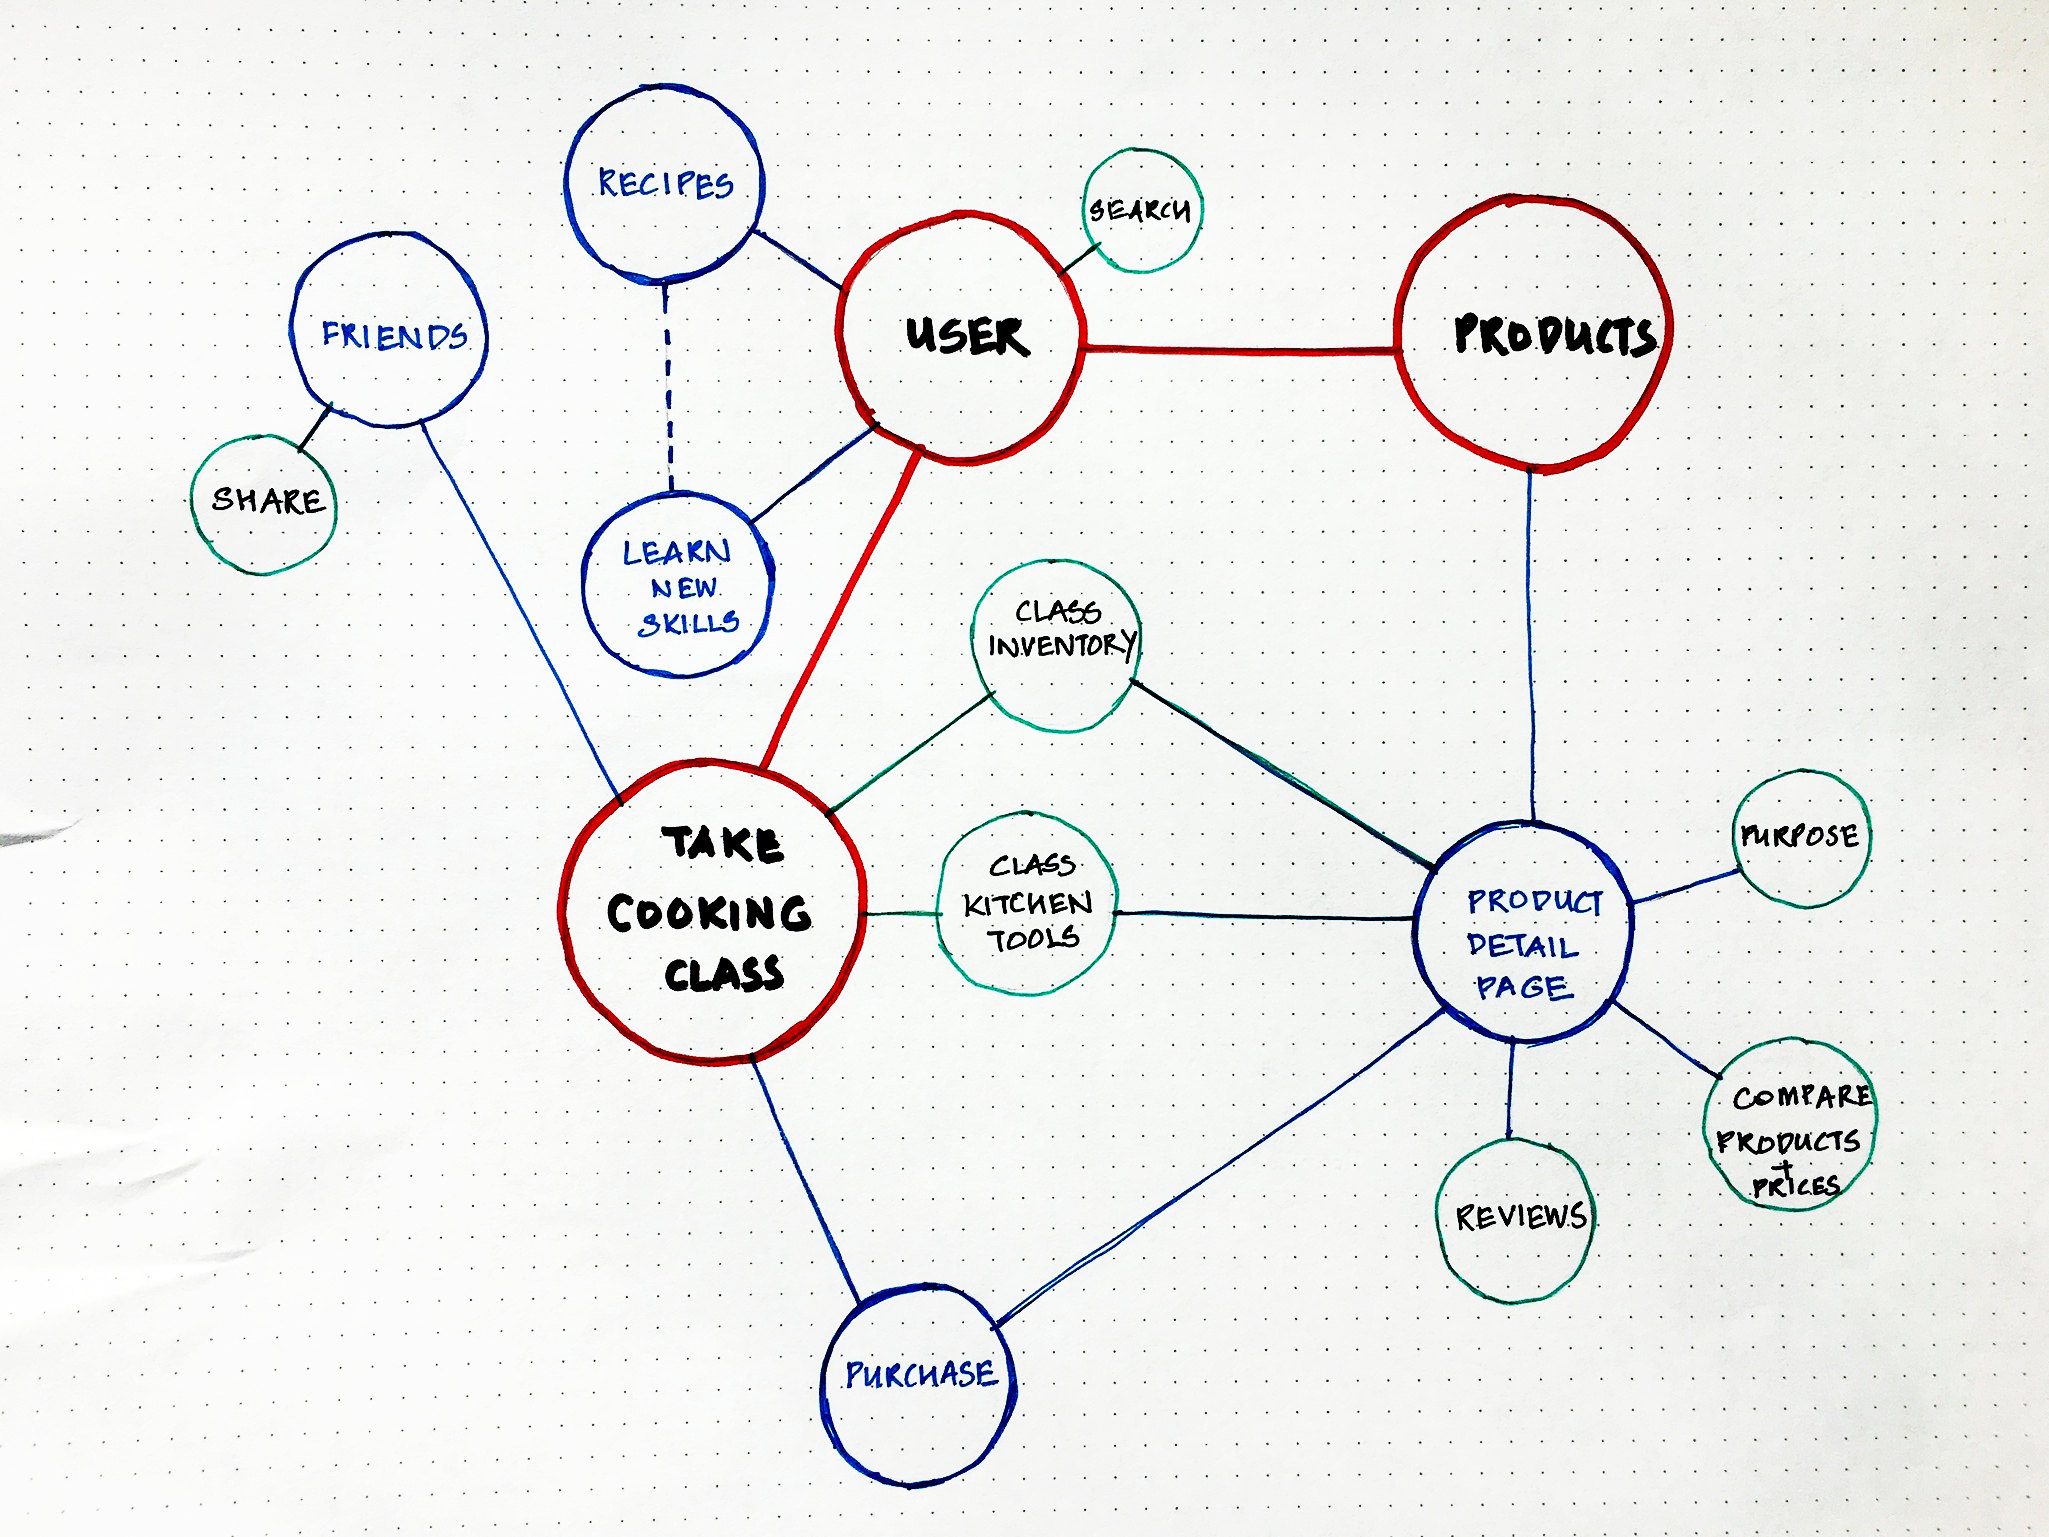 RECIPES
SEARCH
FRIENDS
USER
PRODUCTS
SHARE
LEARN
NEW
SKILLS
CLASS
INVENTORY
TAKE
COOKING
CLASS
CLASS
KITCHEN
TOOLS
PURPOSE
PRODUCT
DETAIL
PAGE
COMPARE
PRODUCTS
+
PRICES
REVIEWS
PURCHASE